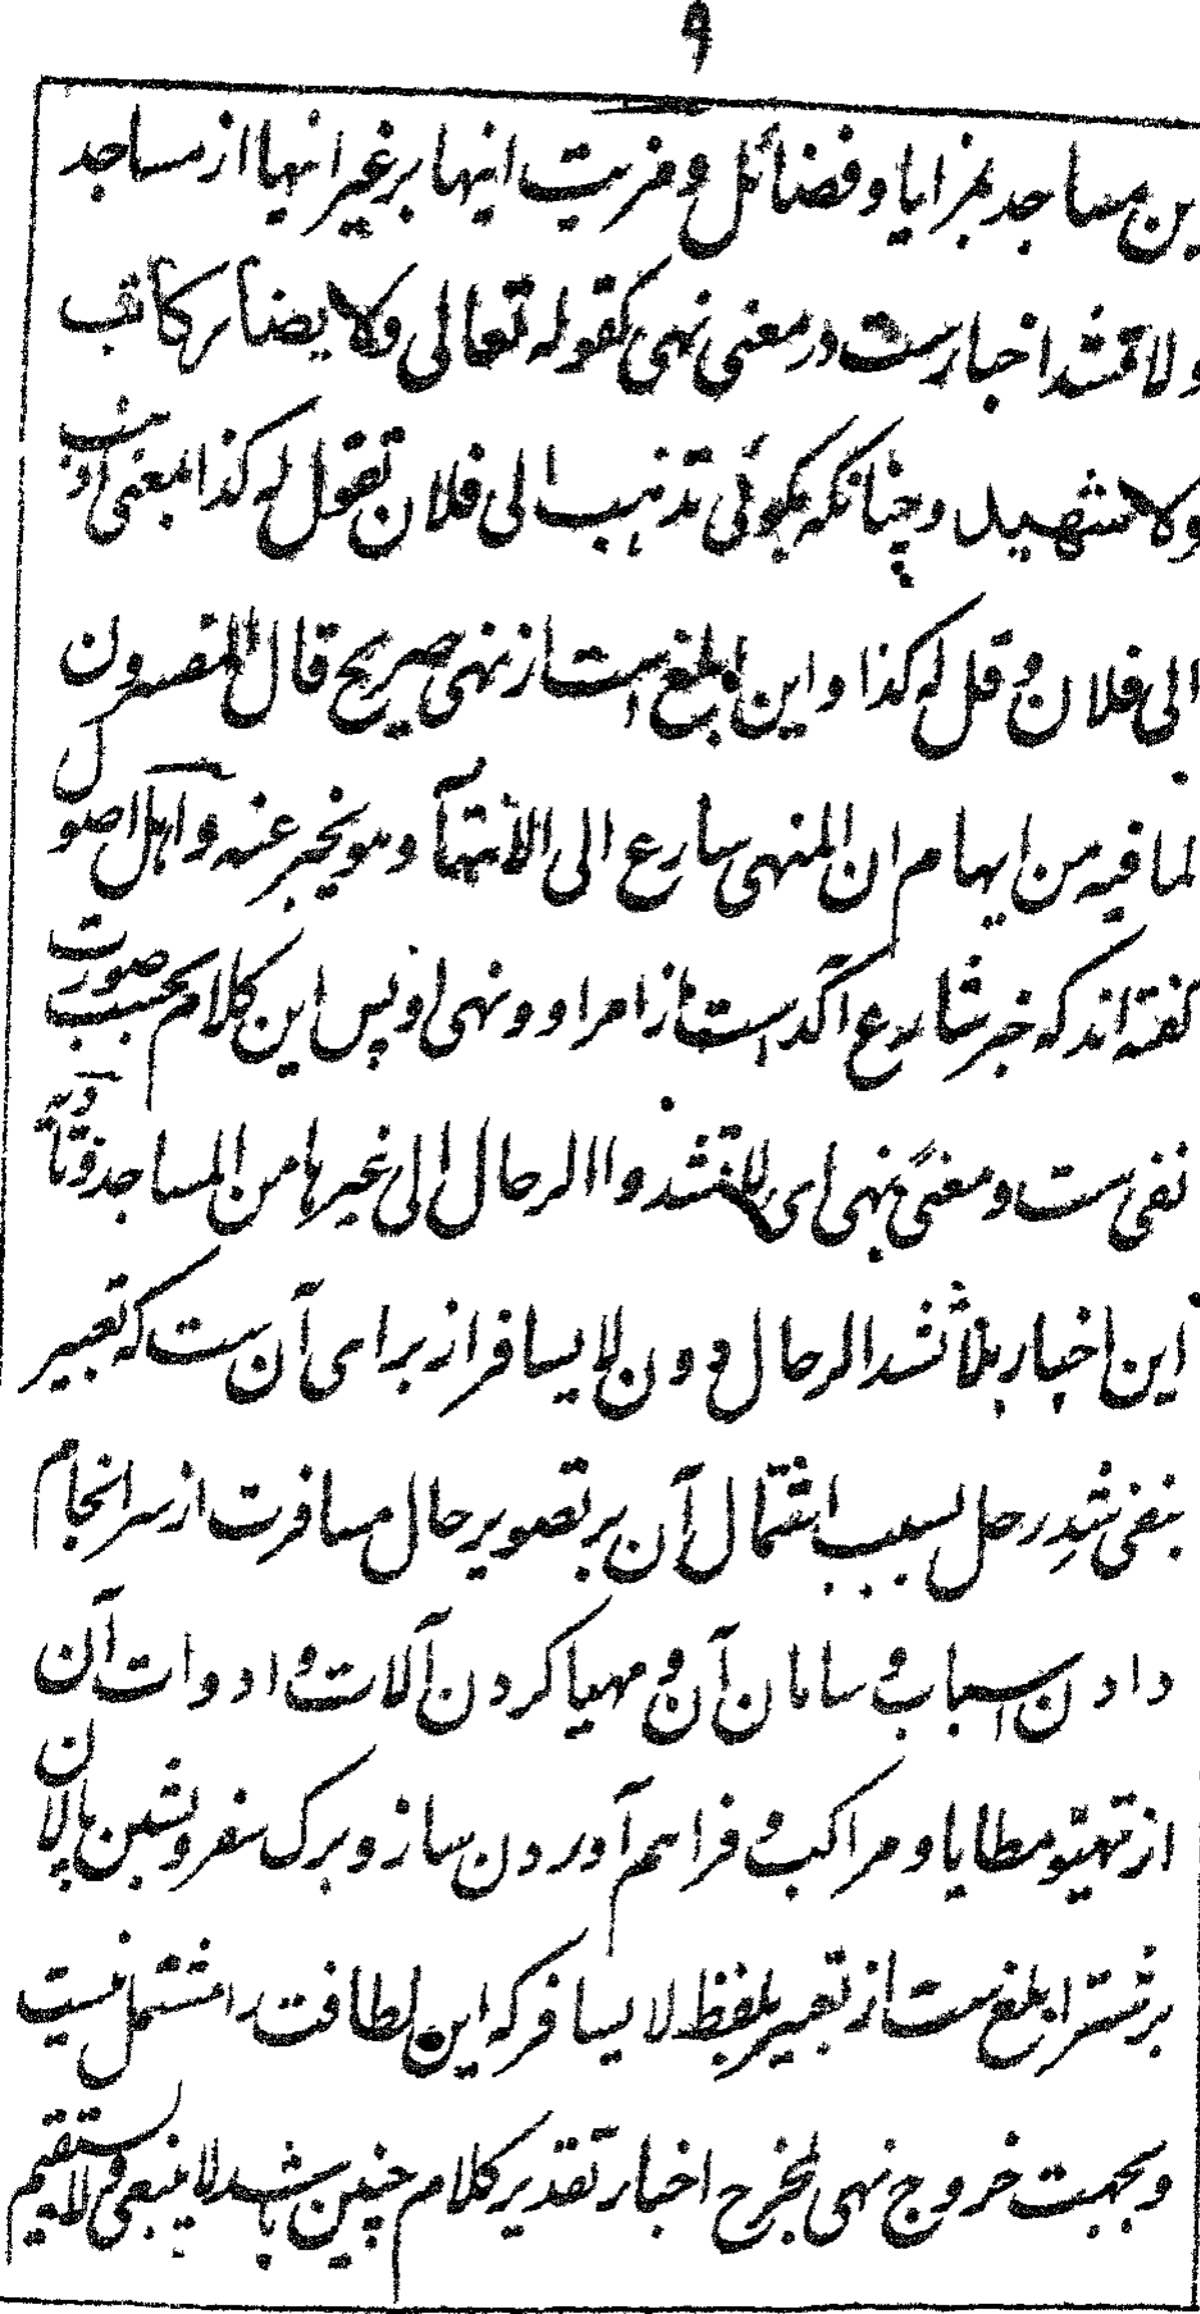 ۹
ین مساجد بمزایا و فضائل و مزیت اینها بر غیر اینها از مساجد
و لا تشد اخبارست در معنی نهی کقوله تعالی ولا یضار کاتب
ولا شهید و چنانکه بگوئی تذهب الی فلان تقول له کذا بمعنی اذهب
الی فلان و قل له کذا و این ابلغ است از نهی صریح قال المفسرون
لما فیه من ایهام ان المنهی سارع الی الانتهآ و هو یخبر عنه و اهل اصول
گفته اند که خبر شارع آکد است از امر او و نهی او پس این کلام بحسب صورت
نفی ست و معنیً نهی ای لا تشدوا الرحال الی غیرها من المساجد و تادیه
این اخبار بلا تشد الرحال دون لا یسافر از برای آن ست که تعبیر
بنفی شدِ رحل بسبب اشتمال آن بر تصویر حال مسافرت از سرانجام
دادن اسباب و سامان آن و مهیا کردن آلات و ادوات آن
از تهیئو مطایا و مراکب و فراهم آوردن ساز و برگ سفر و بستن پالان
بر شتر ابلغ ست از تعبیر بلفظ لا یسافر که این لطافت را مشتمل نیست
و بجهت خروج نهی بمخرج اخبار تقدیر کلام چنین باشد لا ینبغی و لا یستقیم